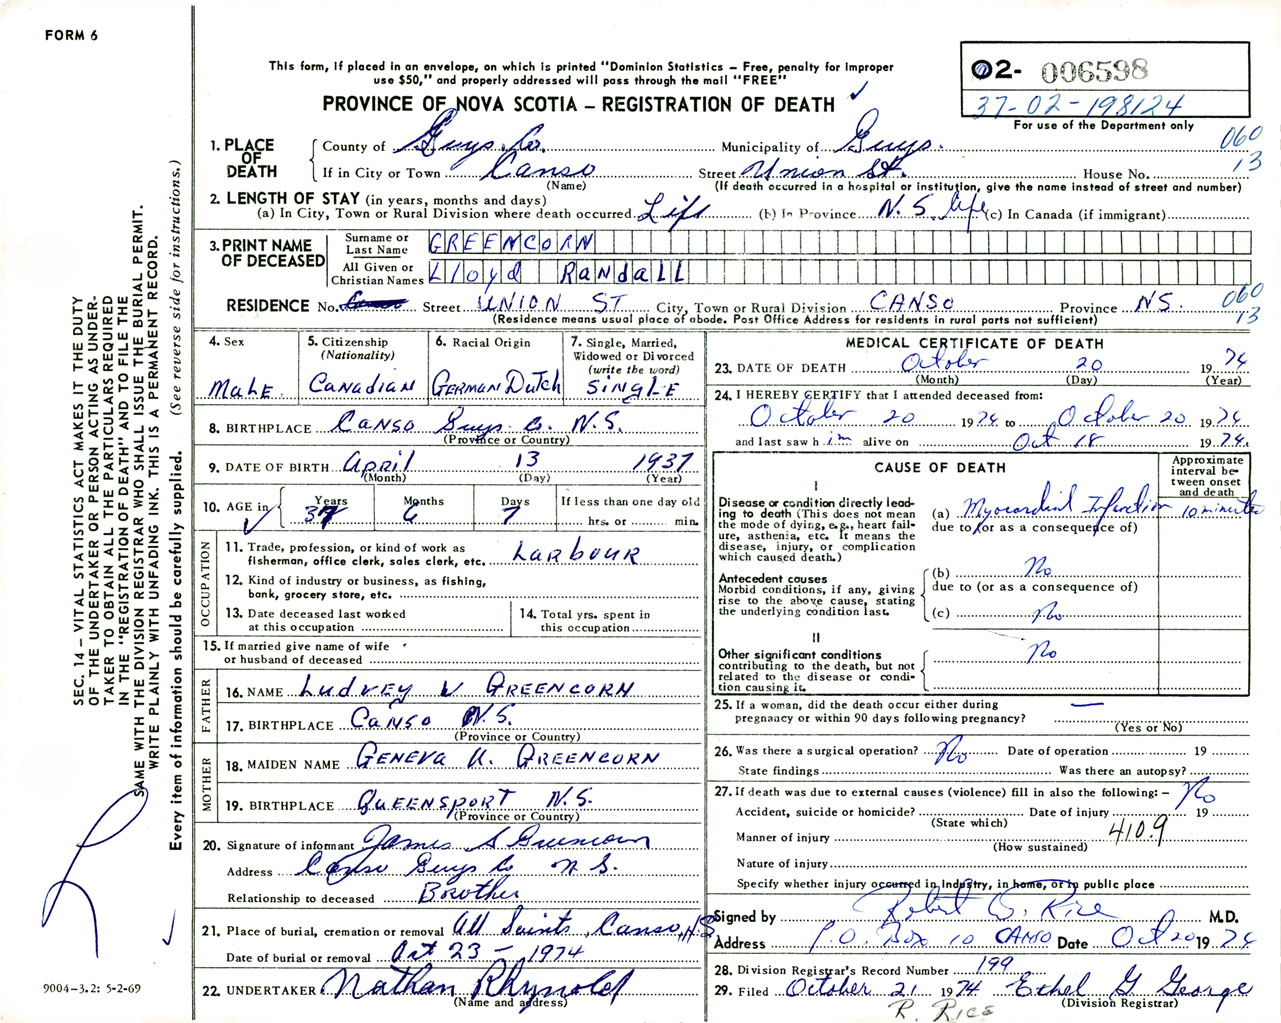 FORM 6
This form, if placed in an envelope, on which is printed "Dominion Statistics – Free, penalty for improper
use $50," and properly addressed will pass through the mail "FREE"
PROVINCE OF NOVA SCOTIA – REGISTRATION OF DEATH
02- 006598
37-02-198124
For use of the Department only
060
13
1. PLACE OF DEATH
County of Guys. Co. Municipality of Guys.
If in City or Town Canso Street Union St. House No.
(Name) (If death occurred in a hospital or institution, give the name instead of street and number)
2. LENGTH OF STAY (in years, months and days)
(a) In City, Town or Rural Division where death occurred Life (b) In Province N.S. life (c) In Canada (if immigrant)
3. PRINT NAME OF DECEASED
Surname or Last Name GREENCORN
All Given or Christian Names Lloyd RandaLL
RESIDENCE No. Street UNION ST City, Town or Rural Division CANSO Province NS.
060
13
(Residence means usual place of abode. Post Office Address for residents in rural parts not sufficient)
4. Sex MaLE
5. Citizenship (Nationality) Canadian
6. Racial Origin German Dutch
7. Single, Married, Widowed or Divorced (write the word) SingLE
8. BIRTHPLACE Canso Guys Co. N.S.
(Province or Country)
9. DATE OF BIRTH April 13 1937
(Month) (Day) (Year)
10. AGE in Years 37 Months 6 Days 7 If less than one day old
hrs. or min.
OCCUPATION
11. Trade, profession, or kind of work as
fisherman, office clerk, sales clerk, etc. Larbour
12. Kind of industry or business, as fishing,
bank, grocery store, etc.
13. Date deceased last worked
at this occupation
14. Total yrs. spent in
this occupation
15. If married give name of wife
or husband of deceased
FATHER
16. NAME Ludvey W GREENCORN
17. BIRTHPLACE Canso N.S.
(Province or Country)
MOTHER
18. MAIDEN NAME GENEVA U. GREENCORN
19. BIRTHPLACE QUEENSPORT N.S.
(Province or Country)
20. Signature of informant James S Greencorn
Address Canso Guys Co N.S.
Relationship to deceased Brother
21. Place of burial, cremation or removal All Saints, Canso, N.S
Date of burial or removal Oct 23 – 1974
22. UNDERTAKER Nathan Rhynold
(Name and address)
MEDICAL CERTIFICATE OF DEATH
23. DATE OF DEATH October 20 19 74
(Month) (Day) (Year)
24. I HEREBY CERTIFY that I attended deceased from:
October 20 19 74 to October 20 19 74
and last saw h im alive on Oct 18 19 74.
CAUSE OF DEATH
Approximate interval between onset and death
I
Disease or condition directly lead-
ing to death (This does not mean
the mode of dying, e.g., heart fail-
ure, asthenia, etc. It means the
disease, injury, or complication
which caused death.)
(a) Myocardial Infarction 10 minutes
due to (or as a consequence of)
Antecedent causes
Morbid conditions, if any, giving
rise to the above cause, stating
the underlying condition last.
(b) No
due to (or as a consequence of)
(c) No
II
Other significant conditions
contributing to the death, but not
related to the disease or condi-
tion causing it.
No
25. If a woman, did the death occur either during
pregnancy or within 90 days following pregnancy? —
(Yes or No)
26. Was there a surgical operation? No Date of operation 19
State findings Was there an autopsy?
27. If death was due to external causes (violence) fill in also the following: – No
Accident, suicide or homicide? Date of injury 19
(State which)
Manner of injury 410.9
(How sustained)
Nature of injury
Specify whether injury occurred in Industry, in home, or in public place
Signed by Robert G. Rice M.D.
Address P.O. Box 10 CANSO Date Oct 20 19 74
28. Division Registrar's Record Number 199
29. Filed October 21 1974 Ethel G George
(Division Registrar)
R. RICE
SEC. 14 – VITAL STATISTICS ACT MAKES IT THE DUTY
OF THE UNDERTAKER OR PERSON ACTING AS UNDER-
TAKER TO OBTAIN ALL THE PARTICULARS REQUIRED
IN THE "REGISTRATION OF DEATH" AND TO FILE THE
SAME WITH THE DIVISION REGISTRAR WHO SHALL ISSUE THE BURIAL PERMIT.
WRITE PLAINLY WITH UNFADING INK. THIS IS A PERMANENT RECORD.
Every item of information should be carefully supplied. (See reverse side for instructions.)
9004-3.2: 5-2-69